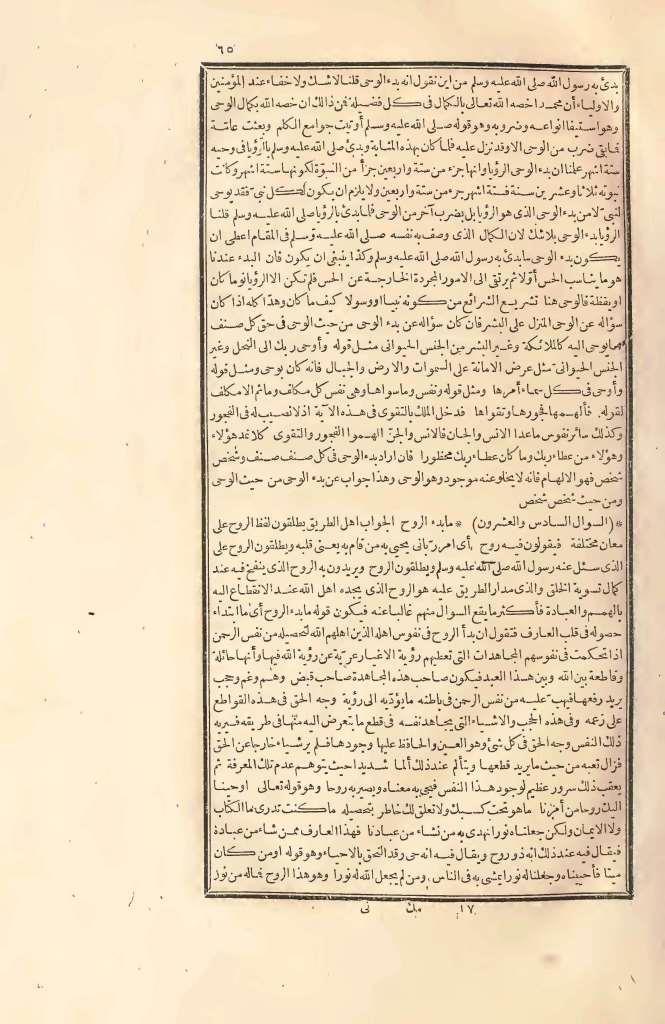 ٦٥
بدئ به رسول الله صلى الله عليه وسلم من اين نقول انه بدء الوحى قلنا لاشك ولا خفاء عند المؤمنين
والاولياء أن محمدا خصه الله تعالى بالكمال فى كل فضيلة فمن ذلك ان خصه الله بكمال الوحى
وهو استيفا انواعه وضروبه وهو قوله صلى الله عليه وسلم أوتيت جوامع الكلم وبعثت عامّة
فما بقى ضرب من الوحى الا وقد نزل عليه فلما كان بهذه المثابة وبدئ صلى الله عليه وسلم بالرؤيا فى وحيه
ستة اشهر علمنا ان بدء الوحى الرؤيا وانها جزء من ستة واربعين جزأ من النبوّة لكونها ستة اشهر وكانت
نبوته ثلاثا وعشرين سنة فستة اشهر جزء من ستة واربعين ولا يلزم ان يكون لكل نبى فقد يوحى
لنبى لا من بدء الوحى الذى هو الرؤيا بل بضرب آخر من الوحى فلما بدئ بالرؤيا صلى الله عليه وسلم قلنا
الرؤيا بدء الوحى بلا شك لان الكمال الذى وصف به نفسه صلى الله عليه وسلم فى المقام اعطى ان
يكون بدء الوحى ما بدئ به رسول الله صلى الله عليه وسلم وكذا ينبغى ان يكون فان البدء عندنا
هو ما يناسب الحس أوّلا ثم يرتقى الى الامور المجردة الخارجة عن الحس فلم تكن الا الرؤيا نوما كان
او يقظة فالوحى هنا تشريع الشرائع من كونه نبيا او رسولا كيف ما كان وهذا كله اذا كان
سؤاله عن الوحى المنزل على البشر فان كان سؤاله عن بدء الوحى من حيث الوحى فى حق كل صنف
مما يوحى اليه كالملائكة وغير البشر من الجنس الحيوانى مثل قوله وأوحى ربك الى النحل وغير
الجنس الحيوانى مثل عرض الامانة على السموات والارض والجبال فانه كان بوحى ومثل قوله
وأوحى فى كل سماء أمرها ومثل قوله ونفس وما سواها وهى نفس كل مكلف وما ثم الا مكلف
لقوله فألهمها فجورها وتقواها فدخل الملك بالتقوى فى هذه الآية اذ لا نصيب له فى الفجور
وكذلك سائر نفوس ماعدا الانس والجان فالانس والجنّ الهموا الفجور والتقوى كلا نمد هؤلاء
وهؤلاء من عطاء ربك وما كان عطاء ربك محظورا فان اراد بدء الوحى فى كل صنف صنف وشخص
شخص فهو الالهام فانه لا يخلو عنه موجود وهو الوحى وهذا جواب عن بدء الوحى من حيث الوحى
ومن حيث شخص شخص
* (السوال السادس والعشرون) * ما بدء الروح الجواب اهل الطريق يطلقون لفظ الروح على
معان مختلفة فيقولون فيه روح أى امر ربّانى يحيى به من قام به يعنى قلبه ويطلقون الروح على
الذى سئل عنه رسول الله صلى الله عليه وسلم ويطلقون الروح ويريدون به الروح الذى ينفخ فيه عند
كمال تسوية الخلق والذى مدار الطريق عليه هو الروح الذى يجده اهل الله عند الانقطاع اليه
بالهمم والعبادة فأكثر ما يقع السوال منهم غالبا عنه فيكون قوله ما بدء الروح أى ما ابتداء
حصوله فى قلب العارف فنقول ان بدأ الروح فى نفوس اهله الذين اهلهم الله لتحصيله من نفس الرحمن
اذا تحكمت فى نفوسهم المجاهدات التى تعطيهم رؤية الاغيار عريّة عن رؤية الله فيها وأنها حائلة
وقاطعة بين الله وبين هذا العبد فيكون صاحب هذه المجاهدة صاحب قبض وهم وغم وحجب
يريد رفعها فيهب عليه من نفس الرحمن فى باطنه ما يؤدّيه الى رؤية وجه الحق فى هذه القواطع
على زعمه وفى هذه الحجب والاشياء التى يجاهد نفسه فى قطع ما يتعرض اليه منها فى طريقه فيريه
ذلك النفس وجه الحق فى كل شئ وهو العين والحافظ عليها وجودها فلم ير شياء خارجا عن الحق
فزال تعبه من حيث ما يريد قطعها ويتألم عند ذلك ألما شديدا حيث يتوهم عدم تلك المعرفة ثم
يعقب ذلك سرور عظيم لوجود هذا النفس فيحيى به معناه ويصير به روحا وهو قوله تعالى اوحينا
اليك روحا من أمرنا ما هو تحت كسبك ولا تعلق لك خاطر بتحصيله ما كنت تدرى ما الكتاب
ولا الايمان ولكن جعلناه نورا نهدى به من نشاء من عبادنا فهذا العارف ممن شاء من عباده
فيقال فيه عند ذلك انه ذو روح ويقال فيه انه حى وقد التحق بالاحياء وهو قوله اومن كان
ميتا فأحييناه وجعلنا له نورا يمشى به فى الناس ومن لم يجعل الله له نورا وهو هذا الروح فما له من نور
١٧ مك نى